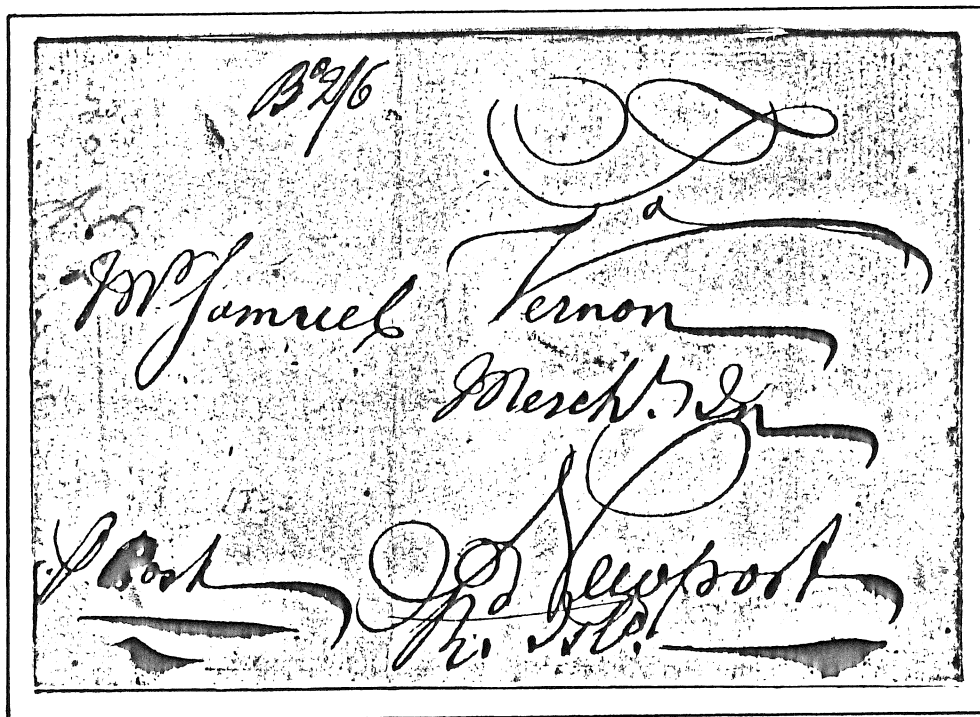 Bº 2/6
To
Mr. Samuel Vernon
Mercht. In
Newport
Rd. Isld.